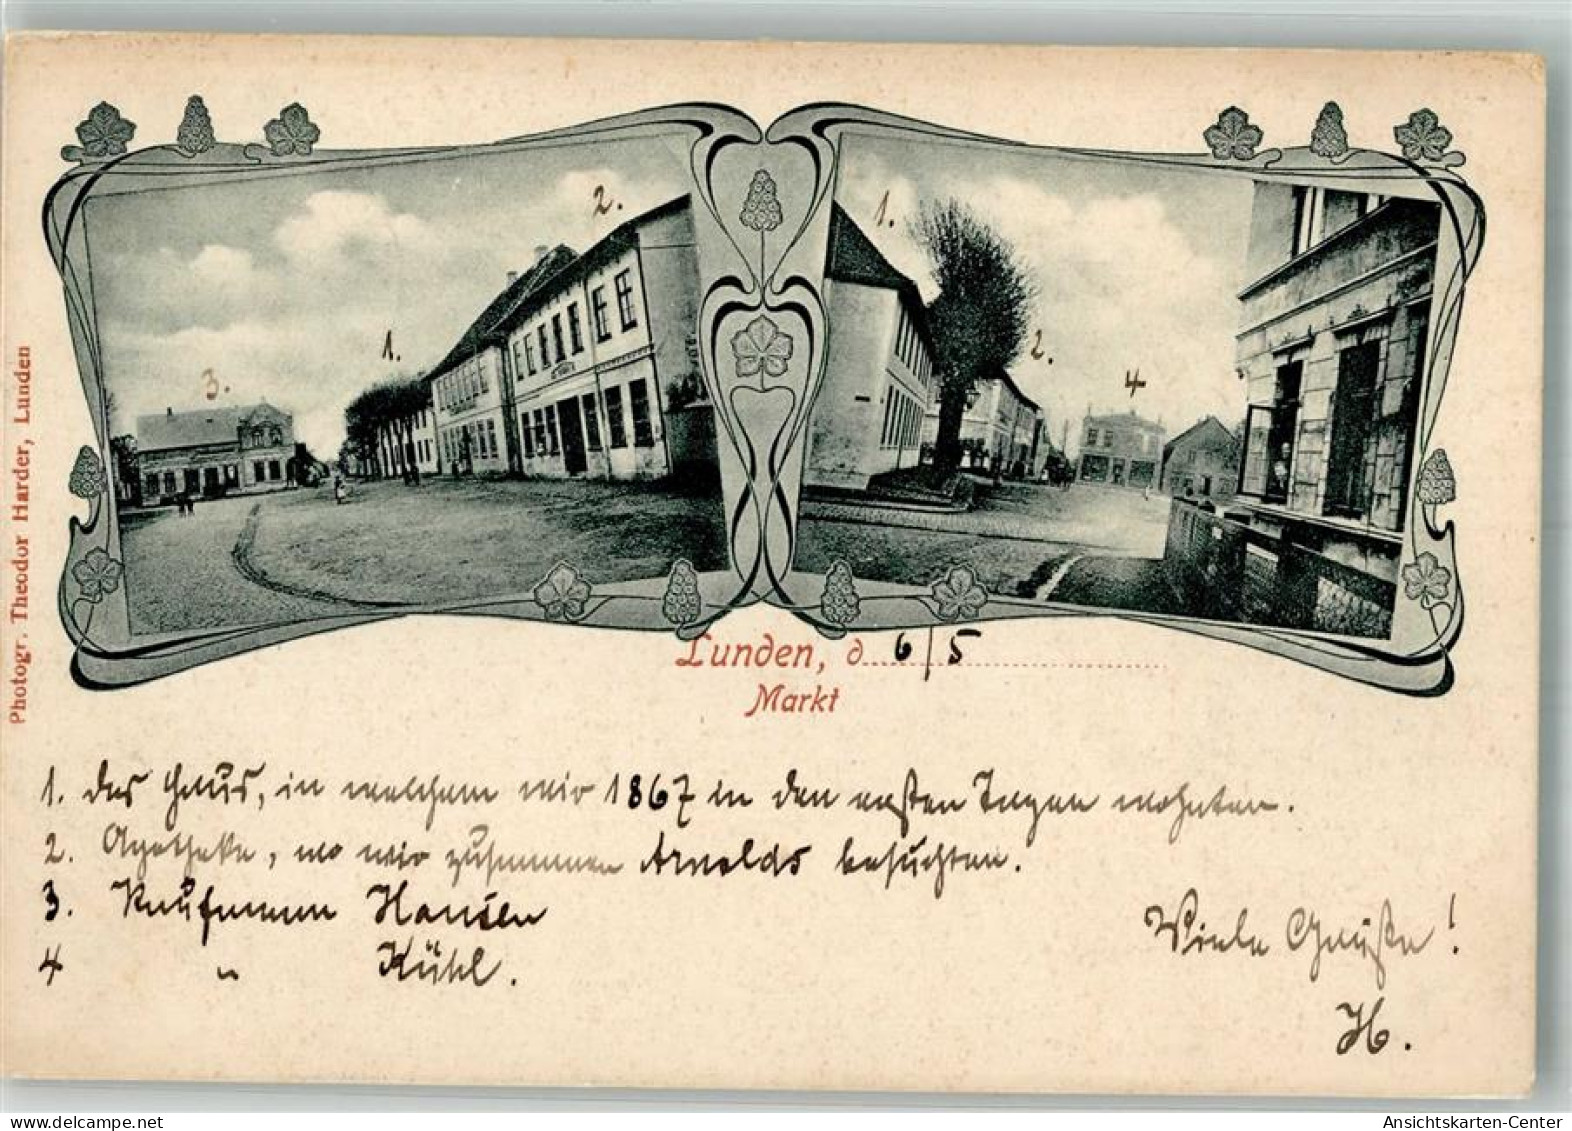 2.
1.
3.
1.
2.
4
Photogr. Theodor Harder, Lunden
Lunden, d. 6/5
Markt
1. das Haus, in welchem wir 1867 in den ersten Tagen wohnten.
2. Apotheke, wo wir zusammen Arnolds besuchten.
3. Kaufmann Hansen
4 " Kühl.
Viele Grüße!
H.
www.oldthing.net
Ansichtskarten-Center